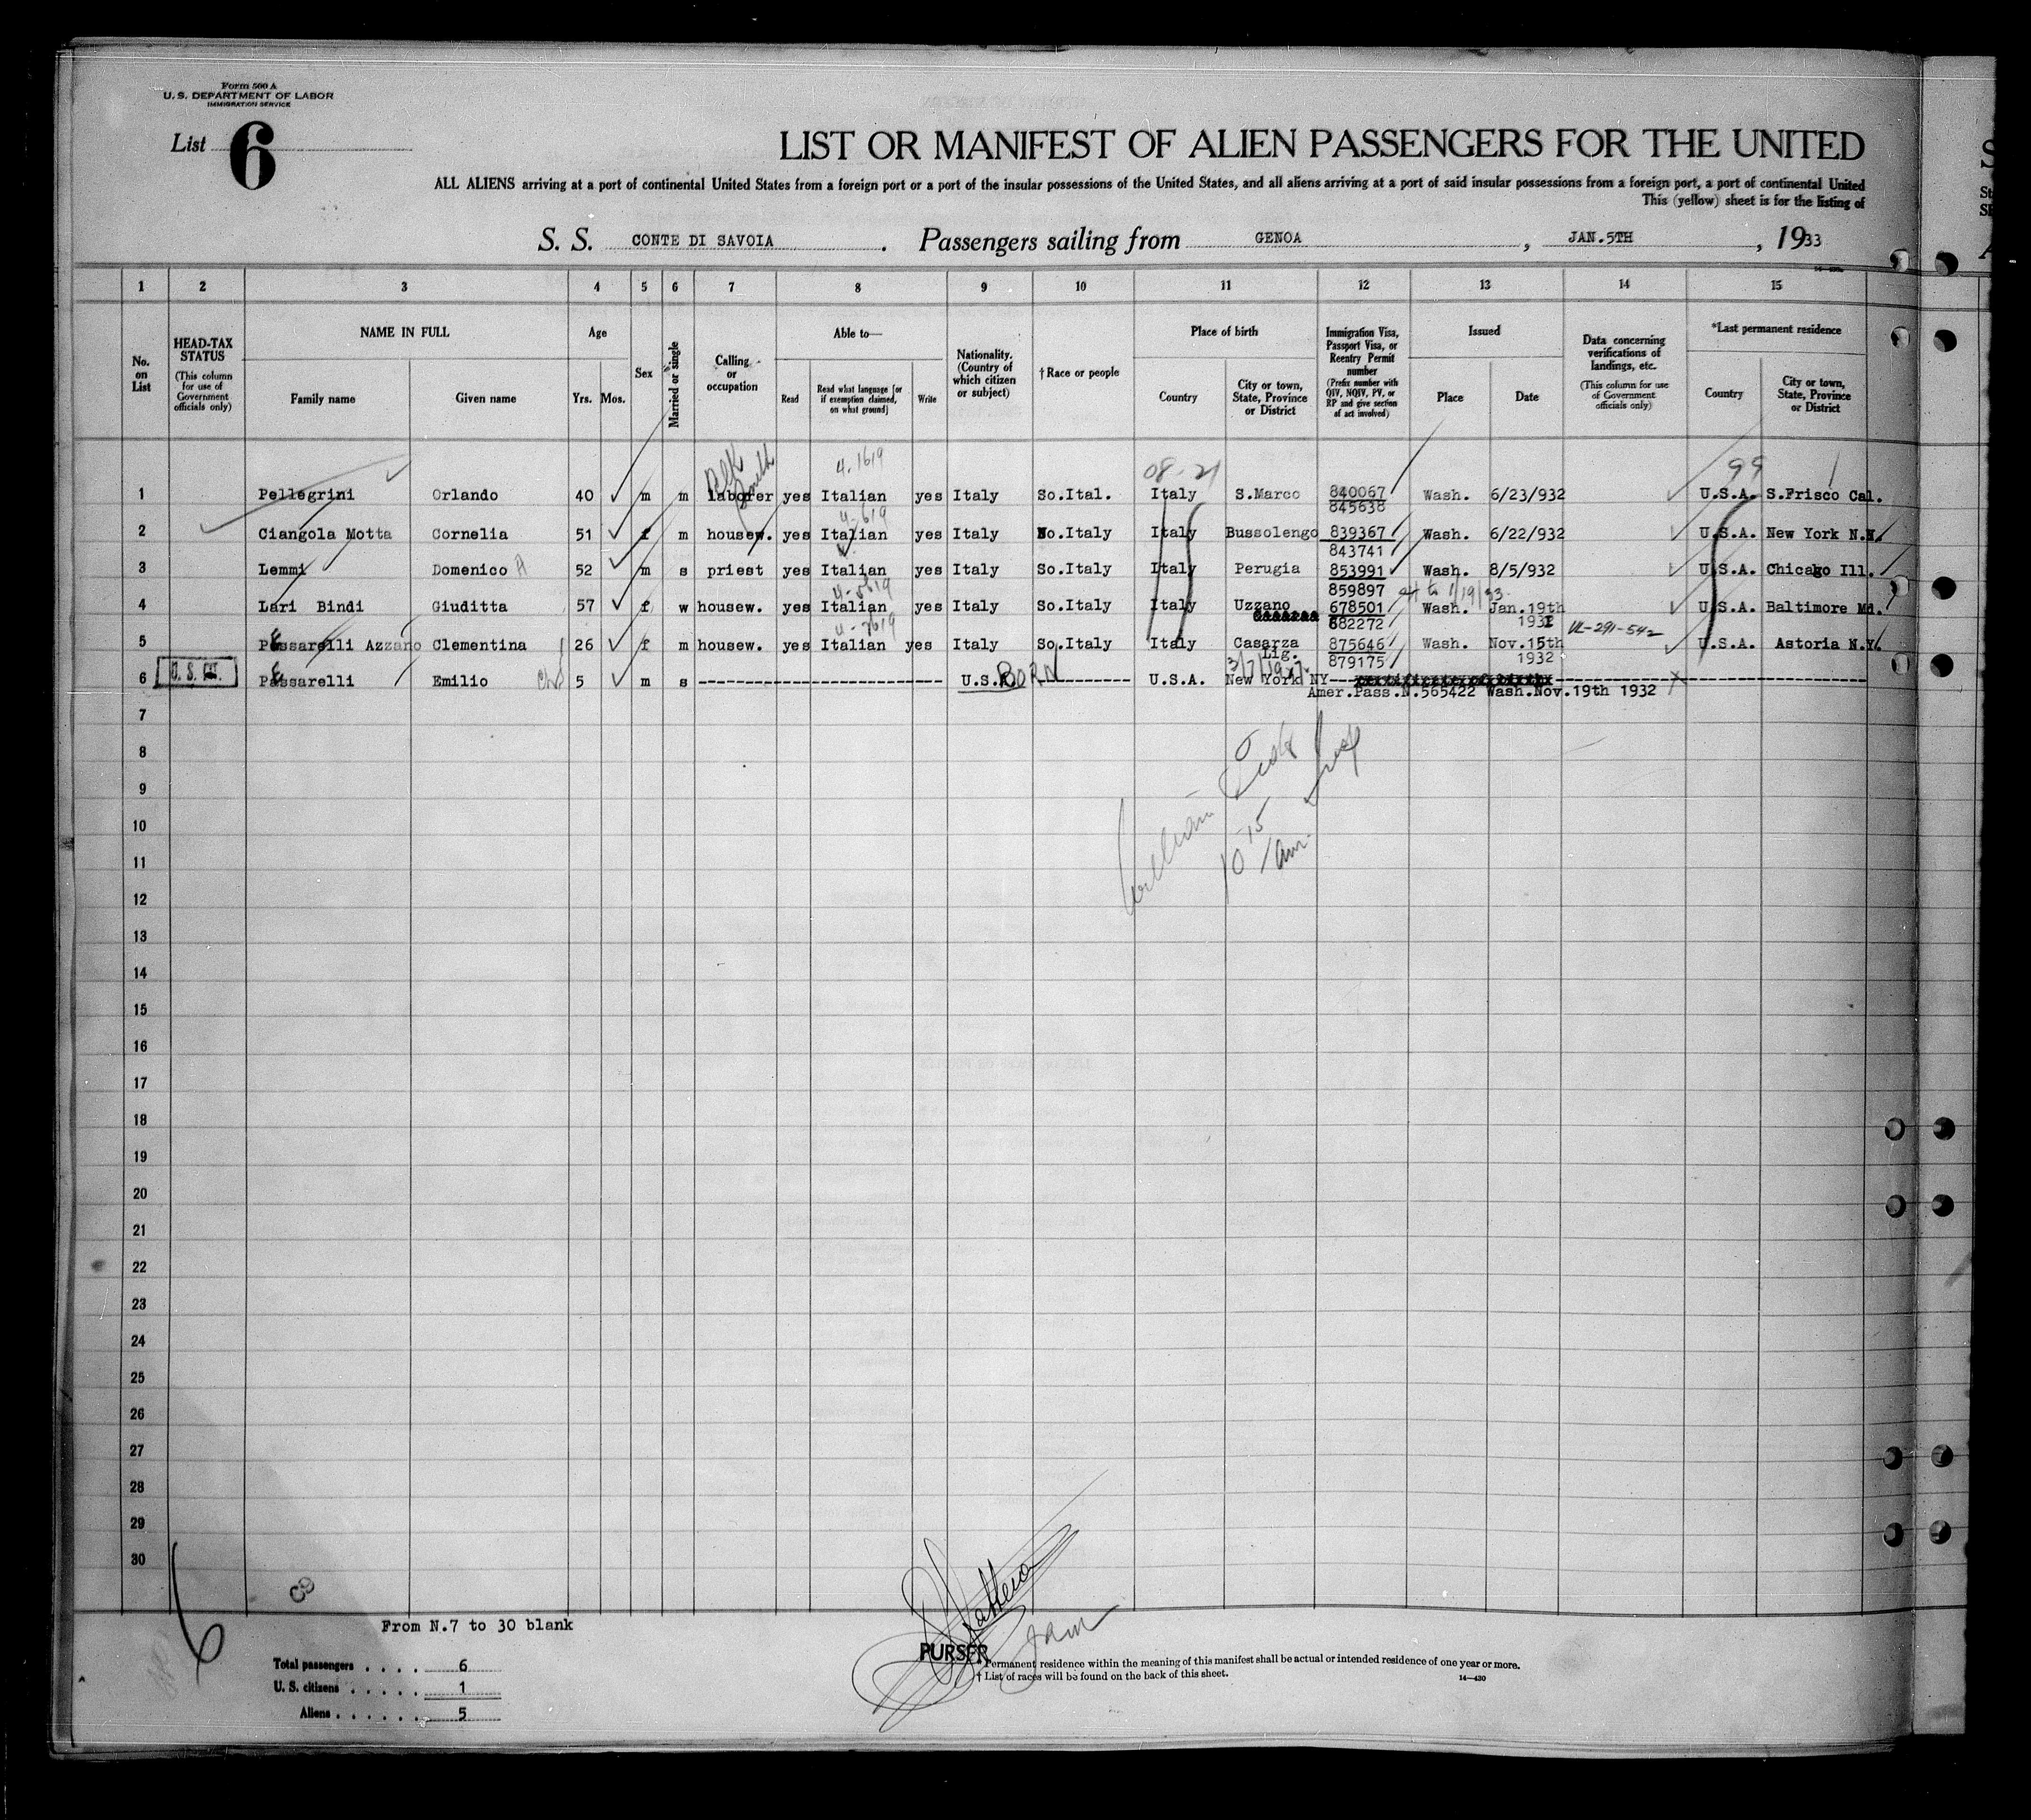 Form 500 A
U. S. DEPARTMENT OF LABOR
IMMIGRATION SERVICE
List 6
LIST OR MANIFEST OF ALIEN PASSENGERS FOR THE UNITED
ALL ALIENS arriving at a port of continental United States from a foreign port or a port of the insular possessions of the United States, and all aliens arriving at a port of said insular possessions from a foreign port, a port of continental United
This (yellow) sheet is for the listing of
S. S. CONTE DI SAVOIA. Passengers sailing from GENOA, JAN.5TH, 1933
1 2 3 4 5 6 7 8 9 10 11 12 13 14 15
No. on List
HEAD-TAX STATUS (This column for use of Government officials only)
NAME IN FULL
Family name Given name
Age
Yrs. Mos.
Sex
Married or single
Calling or occupation
Able to—
Read Read what language [or if exemption claimed, on what ground] Write
Nationality. (Country of which citizen or subject)
† Race or people
Place of birth
Country City or town, State, Province or District
Immigration Visa, Passport Visa, or Reentry Permit number (Prefix number with QIV, NQIV, PV, or RP and give section of act involved)
Issued
Place Date
Data concerning verifications of landings, etc. (This column for use of Government officials only)
*Last permanent residence
Country City or town, State, Province or District
4-1619 08-21 99
1 Pellegrini Orlando 40 m m laborer yes Italian yes Italy So.Ital. Italy S.Marco 840067 Wash. 6/23/932 U.S.A. S.Frisco Cal.
845638
4-619
2 Ciangola Motta Cornelia 51 f m housew. yes Italian yes Italy No.Italy Italy Bussolengo 839367 Wash. 6/22/932 U.S.A. New York N.Y.
843741
3 Lemmi Domenico A 52 m s priest yes Italian yes Italy So.Italy Italy Perugia 853991 Wash. 8/5/932 U.S.A. Chicago Ill.
859897
4-5619 1/19/33
4 Lari Bindi Giuditta 57 f w housew. yes Italian yes Italy So.Italy Italy Uzzano 678501 Wash. Jan.19th U.S.A. Baltimore Md.
682272 1932
4-7619 VL-291-542
5 Pessarelli Azzano Clementina 26 f m housew. yes Italian yes Italy So.Italy Italy Casarza 875646 Wash. Nov.15th U.S.A. Astoria N.Y.
Lig. 879175 1932
3/7/1927
U. S. CIT. 6 Pessarelli Emilio 5 m s U.S.A. BORN U.S.A. New York NY
Amer.Pass.N.565422 Wash.Nov.19th 1932
7
8
9
10
10 15 am
11
12
13
14
15
16
17
18
19
20
21
22
23
24
25
26
27
28
29
30
6
From N.7 to 30 blank
PURSER
Total passengers . . . . 6
U. S. citizens . . . . . 1
Aliens . . . . . . 5
* Permanent residence within the meaning of this manifest shall be actual or intended residence of one year or more.
† List of races will be found on the back of this sheet.
14—430